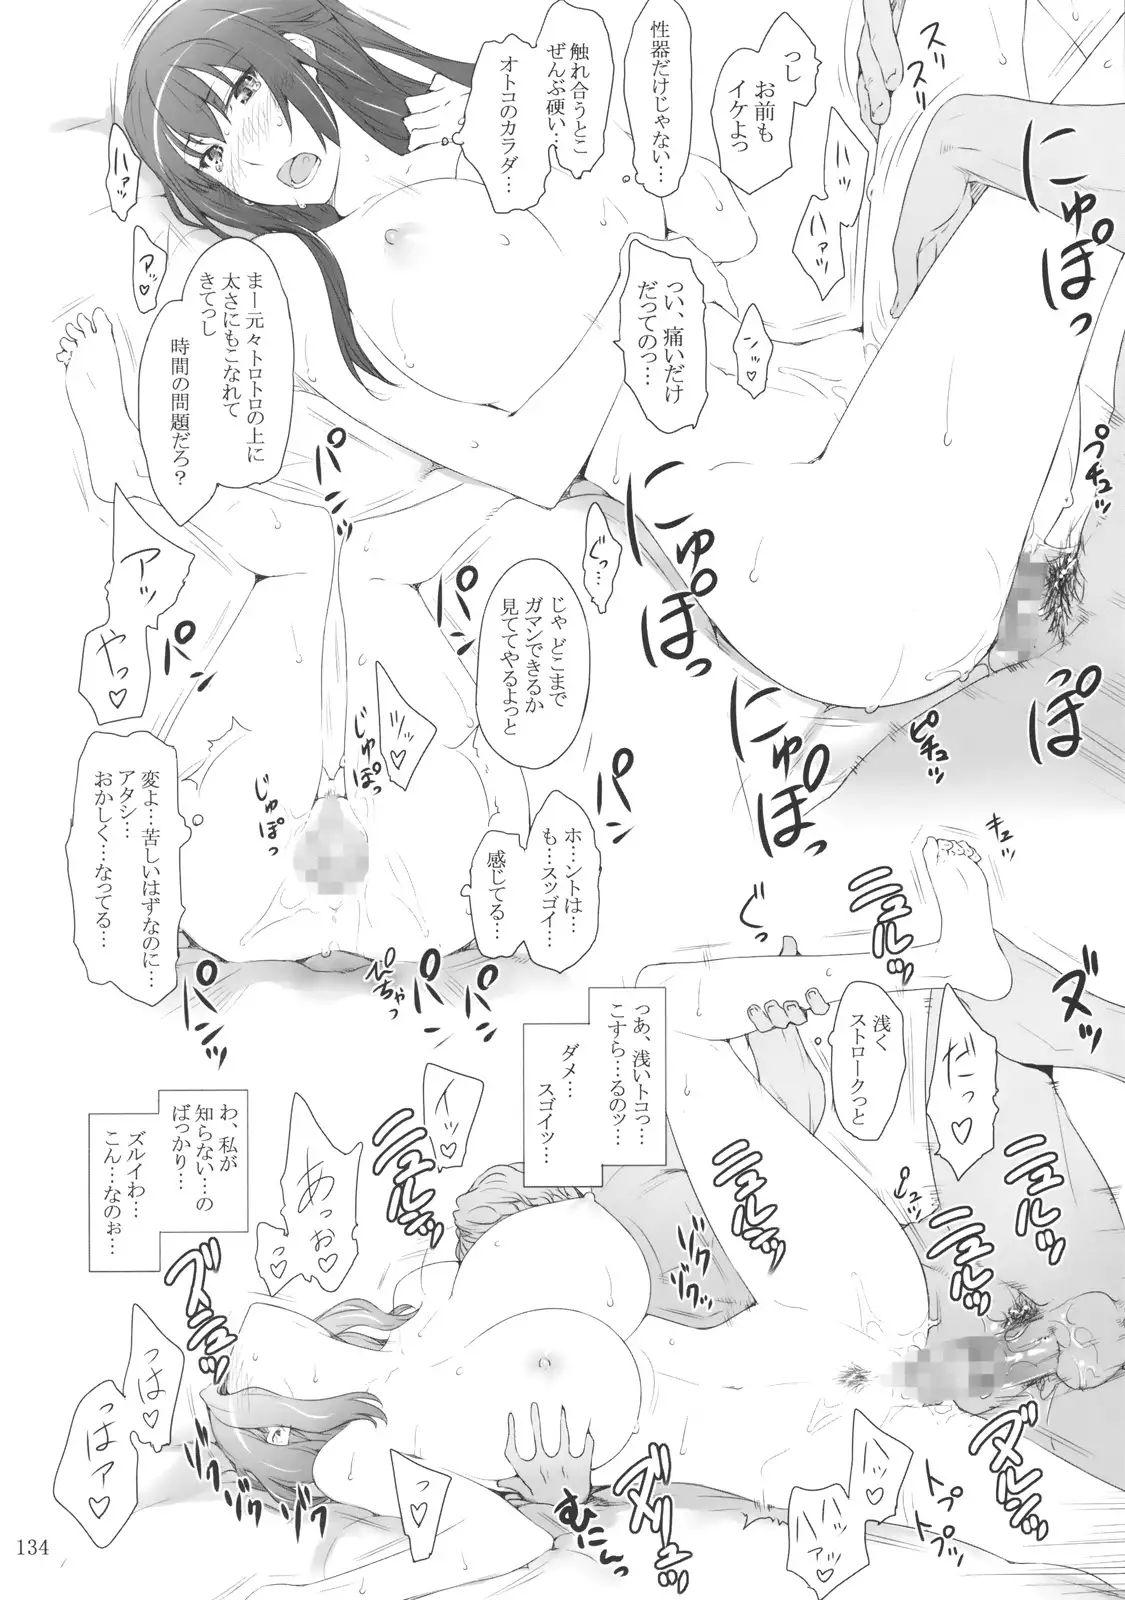 っし
お前も
イケよっ
性器だけじゃない…
触れ合うとこ
ぜんぶ硬い…
オトコのカラダ…
つい、痛いだけ
だってのっ…
まー元々トロトロの上に
太さにもこなれて
きてっし
時間の問題だろ?
じゃ どこまで
ガマンできるか
見ててやるよっと
ホ…ントは…
も…スッゴイ…
感じてる…
変よ…苦しいはずなのに…
アタシ…
おかしく…なってる…
浅く
ストロークっと
っあ、浅いトコっ…
こすら…るのッ…
ダメ…
スゴイッ…
わ、私が
知らない…の
ばっかり…
ズルイわ…
こん…なのぉ…
スッ
スリッ
ハァッ
ハァッ
アッ♥
ンッ♥
にゅぽっ
にゅぽっ
にゅぽっ
プチュッ
っぽっ
ピチュッ
パンッ
パ
パ
パ
パ
パン
パン
ぐっ…
アッ
やっ♥
じゅぽっ
じゅぽっ
ぴちゃっ
キュッ
ぐっ
ニュルッ
ニュルッ
ニュルッ
ニュルッ
ニュルッ
だっ♥
イッ♥
あっ
ぉ♥
っ♥
ゾクッ
ゾクッ
ズニュッ
っは♥
っはァ♥
ゾクッ
ゾクッ
っ♥
むにんっ
ズリュッ
ハァッ♥
トプ
トプッ
ズルッ
134